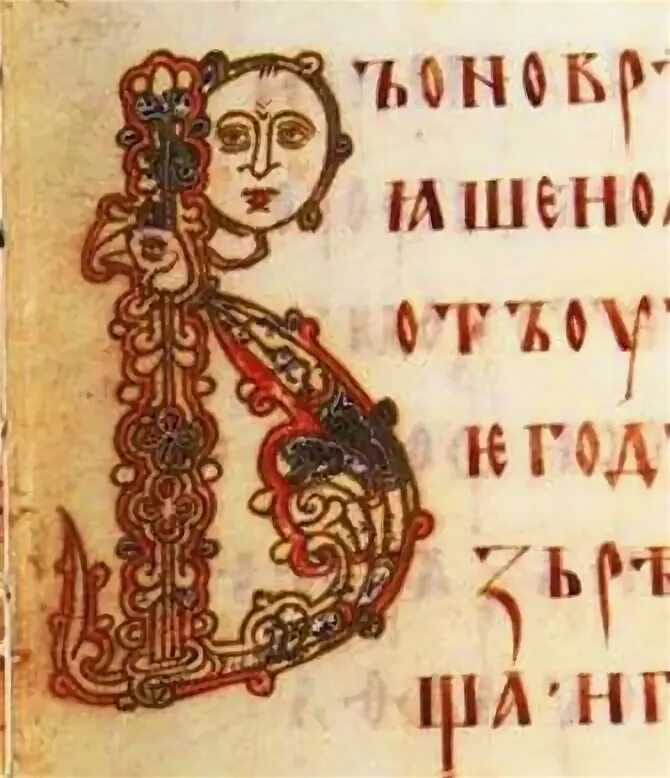 В ЪОНОВР
ꙖШЕНО
ОТЪОУ
ѤГОД
ЗЬРѢ
ЩА·НГ